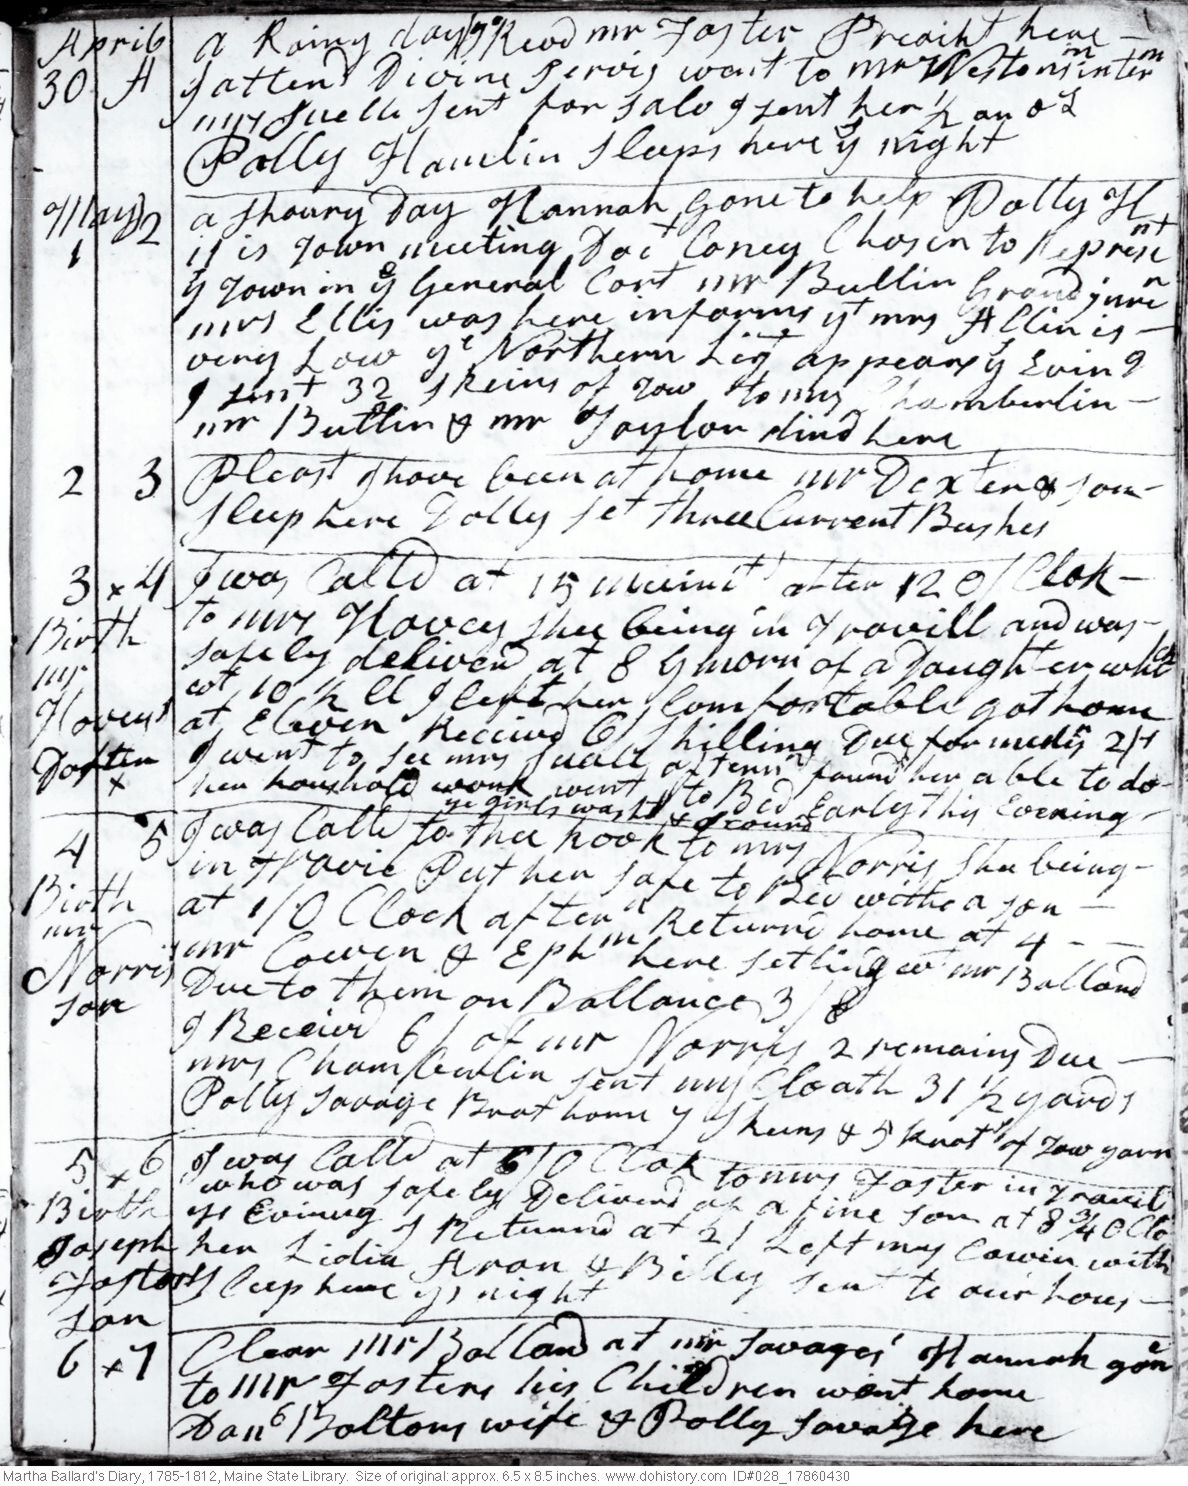 April
30 A
a Rainy day ye Revd mr Foster Preacht here
I attend Divine Servis went to mrs Westons in intermn
mrs Suell sent for salv I sent her 1/2 an oz
Polly Hamlin Sleeps here ye night
May 2
1
a Shoury Day Hannah gone to help Polly H
it is Town meeting Doct Coney Chosin to Represent
ye Town in ye General Cort mr Bullin Grand jurin
mrs Ellis was here informs yt mrs Allin is
very Low ye Northern Ligt appears ye Evin g
I sent 32 skeins of Tow to mrs Chamberlin
mr Bullin & mr Taylor dind here
2 3
Pleast I have been at home mr Dexter & son
sleep here Dolly set three Current Bushes
3 x 4
Birth
mr
Hoveys
Dafter
x
I was Calld at 15 minnits after 12 O Clok
to mrs Hovey shee being in Travill and was
safely deliverd at 8 ye morn of a Daughter which
wt 10 1/2 ll I left her Comfortable got home
at Eleven Receivd 6 Shillings Due formerly 2/
I went to see mrs Suall aftern found her able to do
her houshold work went to Bed Early this Evening
ye girls washt & scourd
4 5
Birth
mr
Norris
son
I was Calld to thee hook to mrs Norris Shee being
in Travie Put her safe to Bed withe a son
at 1/O Clock aftern Returnd home at 4
mr Cowen & Ephm here setling wt mr Ballard
Due to them on Ballance 3/8
I Receivd 6/ of mr Norris 2 remains Due
mrs Chamberlin sent my Cloath 31 1/2 yards
Polly Savage Brot home 7 Skeins & 5 knots of Tow yarn
5 x 6
Birth
Joseph
Fosters
son
I was Calld at 6/O Clok to mrs Foster in Travil
who was safely Deliverd of a fine son at 8 3/4 O Clo
ys Evinng I Returnd at 21 Left mrs Cowin with
her Lidia Aron & Billy sent to our hous
Sleep here ys night
6 x 7
Clear mr Ballard at mr Savages Hannah gone
to mr Fosters his Children went home
Danl Boltons wife & Polly Savage here
Martha Ballard's Diary, 1785-1812, Maine State Library. Size of original: approx. 6.5 x 8.5 inches. www.dohistory.com ID#028_17860430